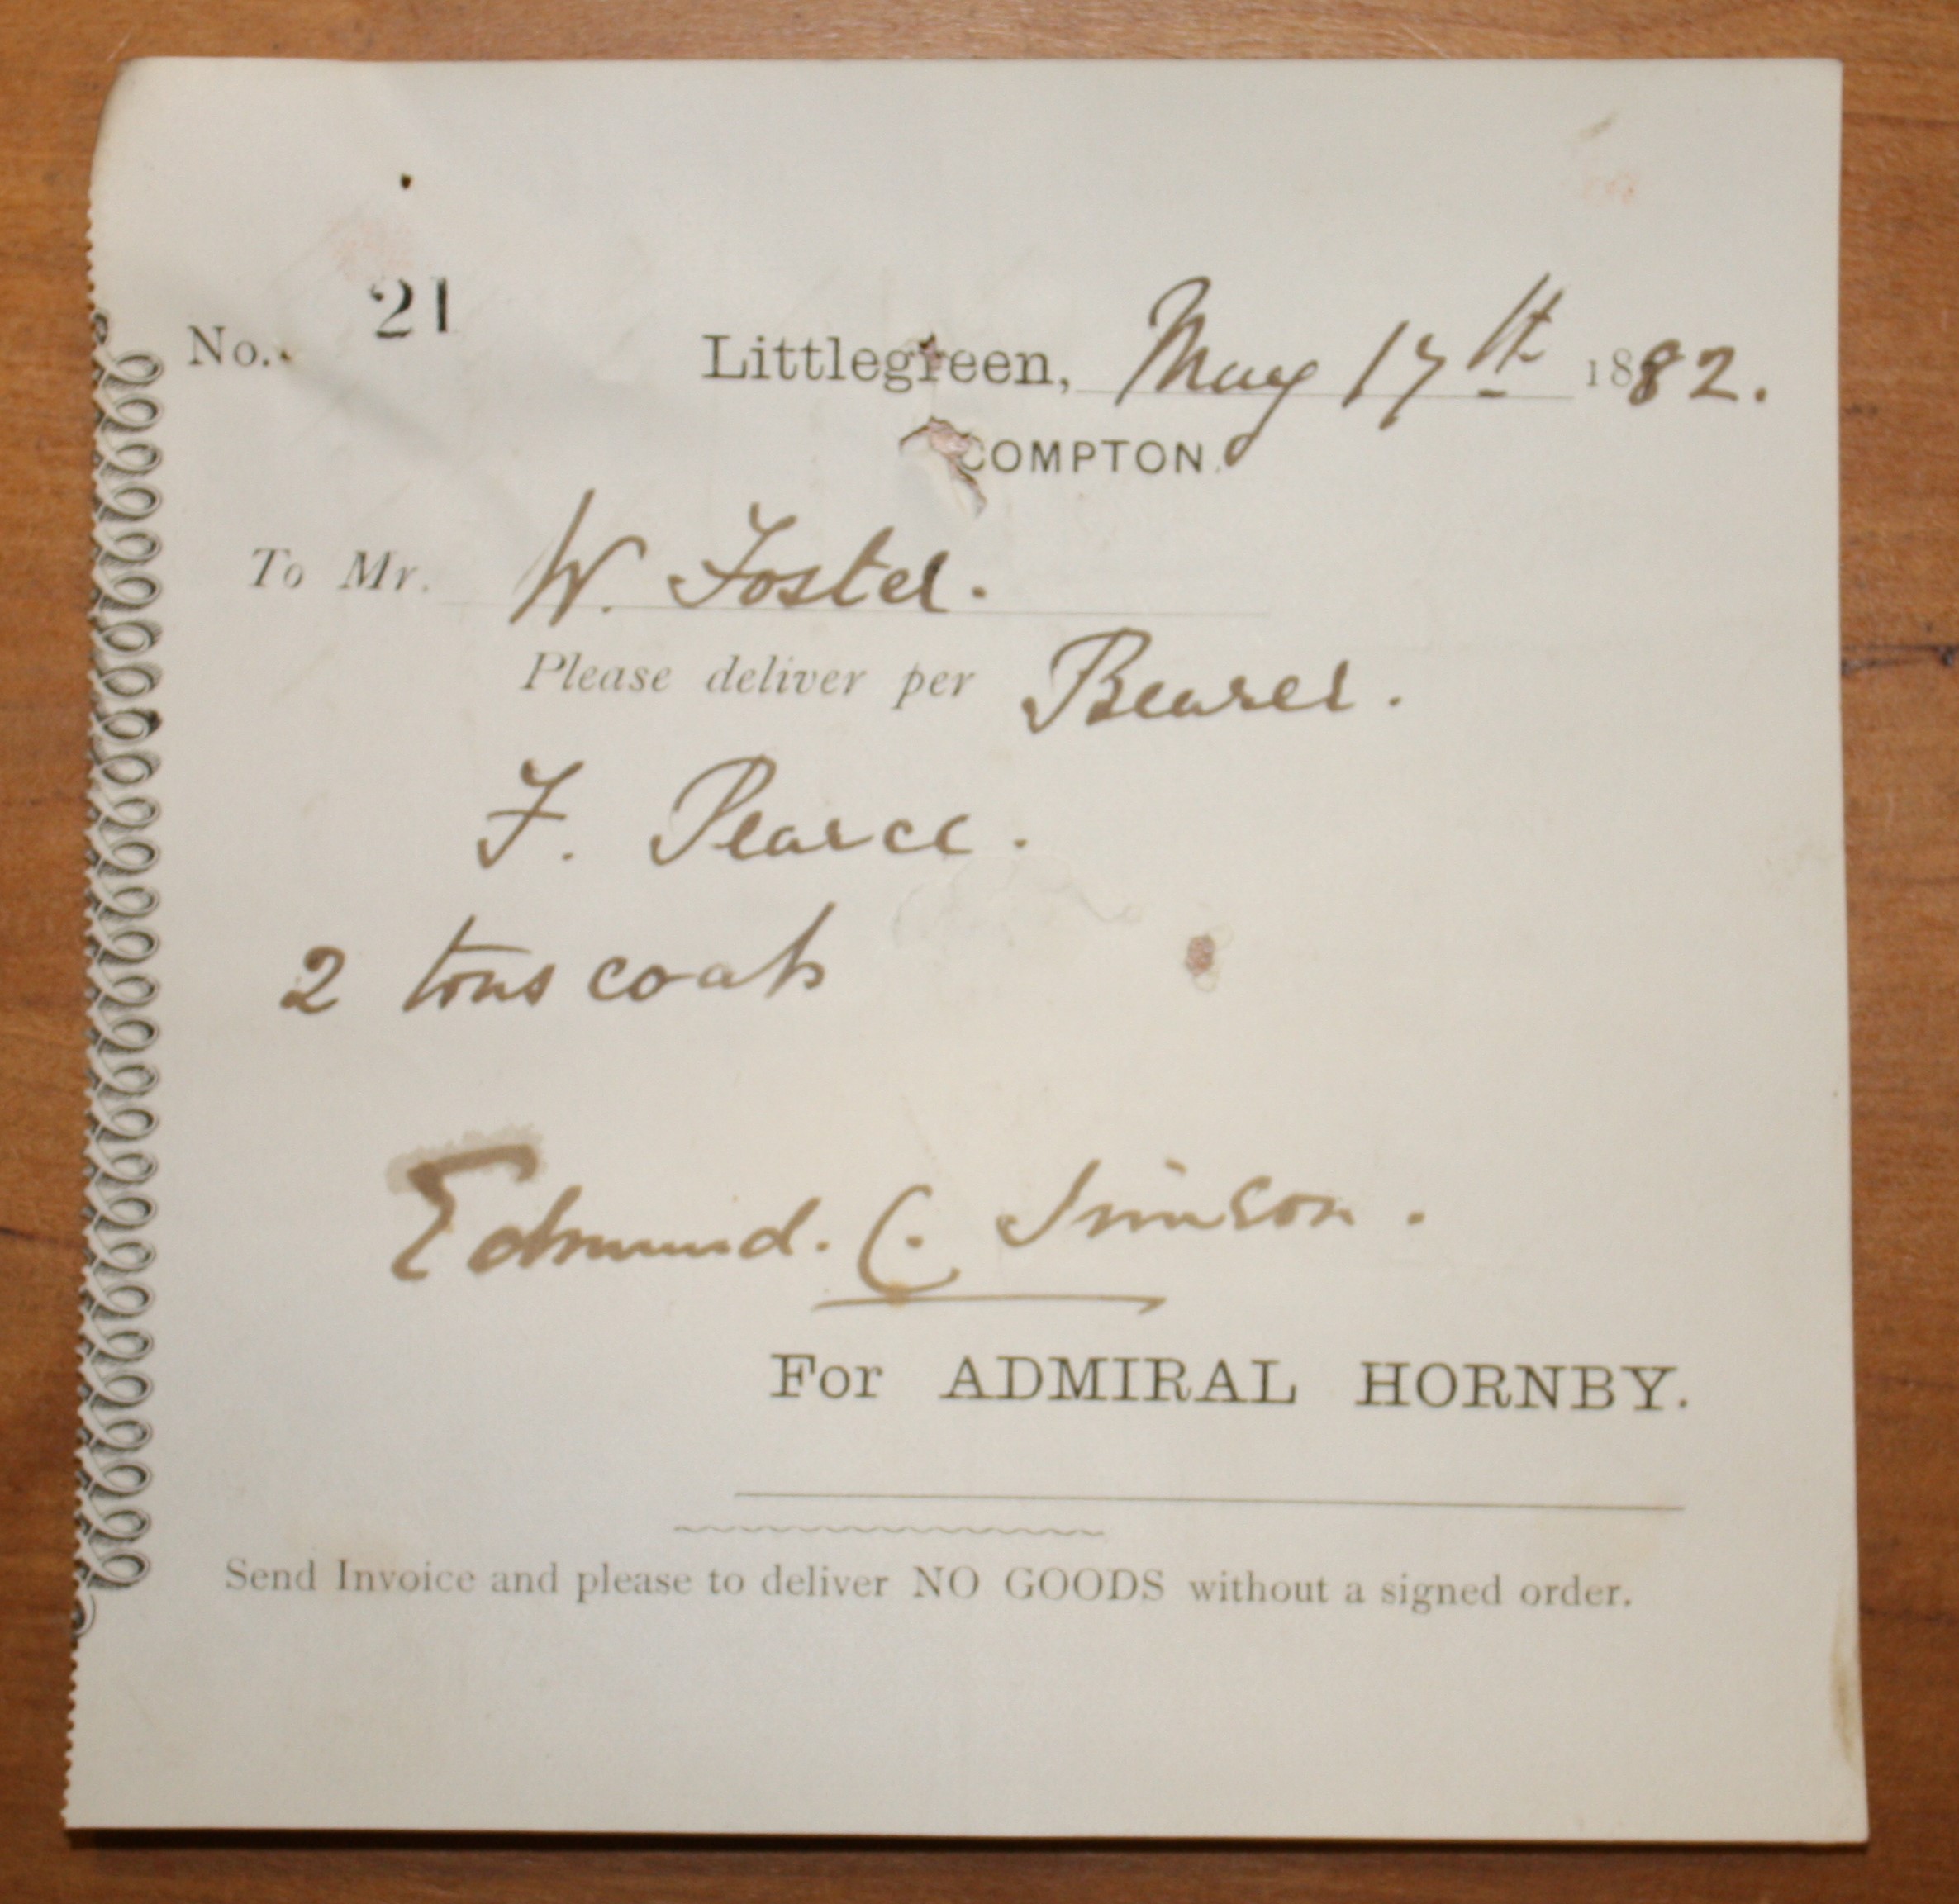 No. 21
Littlegreen, May 17th 1882.
COMPTON.
To Mr. W. Foster.
Please deliver per Bearer.
F. Pearce.
2 tons coals
Edmund. C. Simson.
For ADMIRAL HORNBY.
Send Invoice and please to deliver NO GOODS without a signed order.